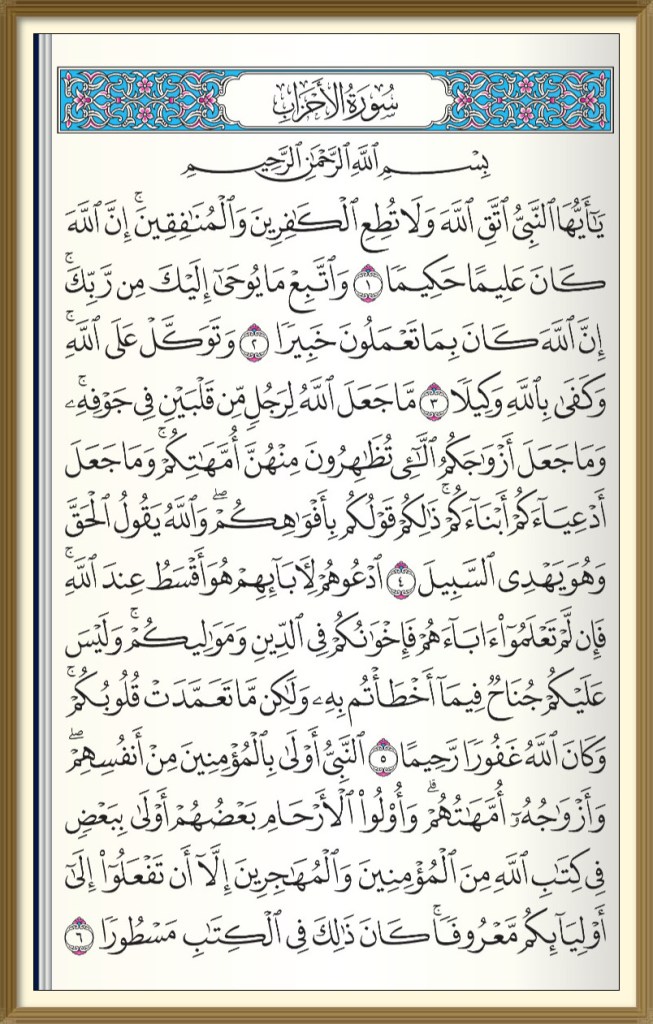 سُورَةُ الأَحْزَابِ
بِسْمِ ٱللَّهِ ٱلرَّحْمَٰنِ ٱلرَّحِيمِ
يَٰٓأَيُّهَا ٱلنَّبِيُّ ٱتَّقِ ٱللَّهَ وَلَا تُطِعِ ٱلْكَٰفِرِينَ وَٱلْمُنَٰفِقِينَۚ إِنَّ ٱللَّهَ
كَانَ عَلِيمًا حَكِيمًا ١ وَٱتَّبِعْ مَا يُوحَىٰٓ إِلَيْكَ مِن رَّبِّكَۚ
إِنَّ ٱللَّهَ كَانَ بِمَا تَعْمَلُونَ خَبِيرًا ٢ وَتَوَكَّلْ عَلَى ٱللَّهِۚ
وَكَفَىٰ بِٱللَّهِ وَكِيلًا ٣ مَّا جَعَلَ ٱللَّهُ لِرَجُلٍ مِّن قَلْبَيْنِ فِي جَوْفِهِۦۚ
وَمَا جَعَلَ أَزْوَٰجَكُمُ ٱلَّٰٓـِٔي تُظَٰهِرُونَ مِنْهُنَّ أُمَّهَٰتِكُمْۚ وَمَا جَعَلَ
أَدْعِيَآءَكُمْ أَبْنَآءَكُمْۚ ذَٰلِكُمْ قَوْلُكُم بِأَفْوَٰهِكُمْۖ وَٱللَّهُ يَقُولُ ٱلْحَقَّ
وَهُوَ يَهْدِي ٱلسَّبِيلَ ٤ ٱدْعُوهُمْ لِأٓبَآئِهِمْ هُوَ أَقْسَطُ عِندَ ٱللَّهِۚ
فَإِن لَّمْ تَعْلَمُوٓا۟ ءَابَآءَهُمْ فَإِخْوَٰنُكُمْ فِي ٱلدِّينِ وَمَوَٰلِيكُمْۚ وَلَيْسَ
عَلَيْكُمْ جُنَاحٌ فِيمَآ أَخْطَأْتُم بِهِۦ وَلَٰكِن مَّا تَعَمَّدَتْ قُلُوبُكُمْۚ
وَكَانَ ٱللَّهُ غَفُورًا رَّحِيمًا ٥ ٱلنَّبِيُّ أَوْلَىٰ بِٱلْمُؤْمِنِينَ مِنْ أَنفُسِهِمْۖ
وَأَزْوَٰجُهُۥٓ أُمَّهَٰتُهُمْۗ وَأُو۟لُوا۟ ٱلْأَرْحَامِ بَعْضُهُمْ أَوْلَىٰ بِبَعْضٍ
فِي كِتَٰبِ ٱللَّهِ مِنَ ٱلْمُؤْمِنِينَ وَٱلْمُهَٰجِرِينَ إِلَّآ أَن تَفْعَلُوٓا۟ إِلَىٰٓ
أَوْلِيَآئِكُم مَّعْرُوفًاۚ كَانَ ذَٰلِكَ فِي ٱلْكِتَٰبِ مَسْطُورًا ٦